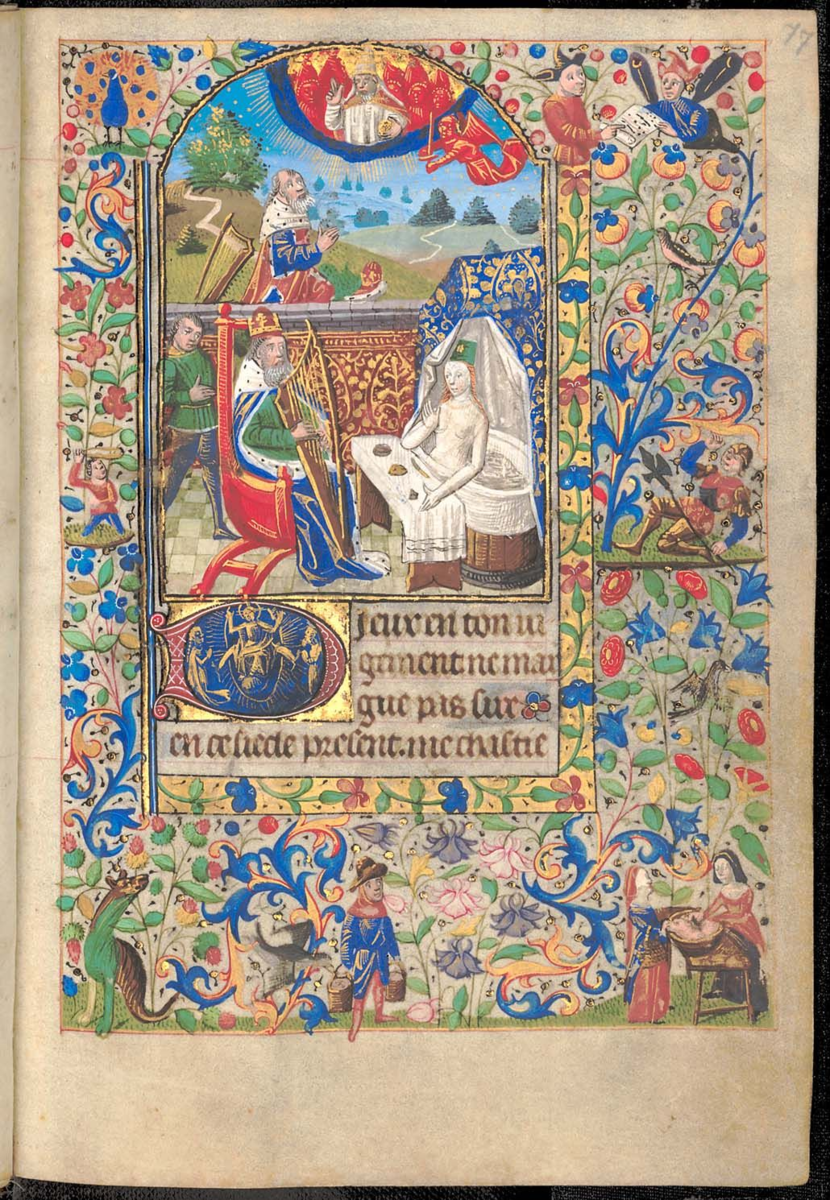 17
Dieux en ton iu
gement ne mar
gue pas sur
en ce siecle present. me chastie